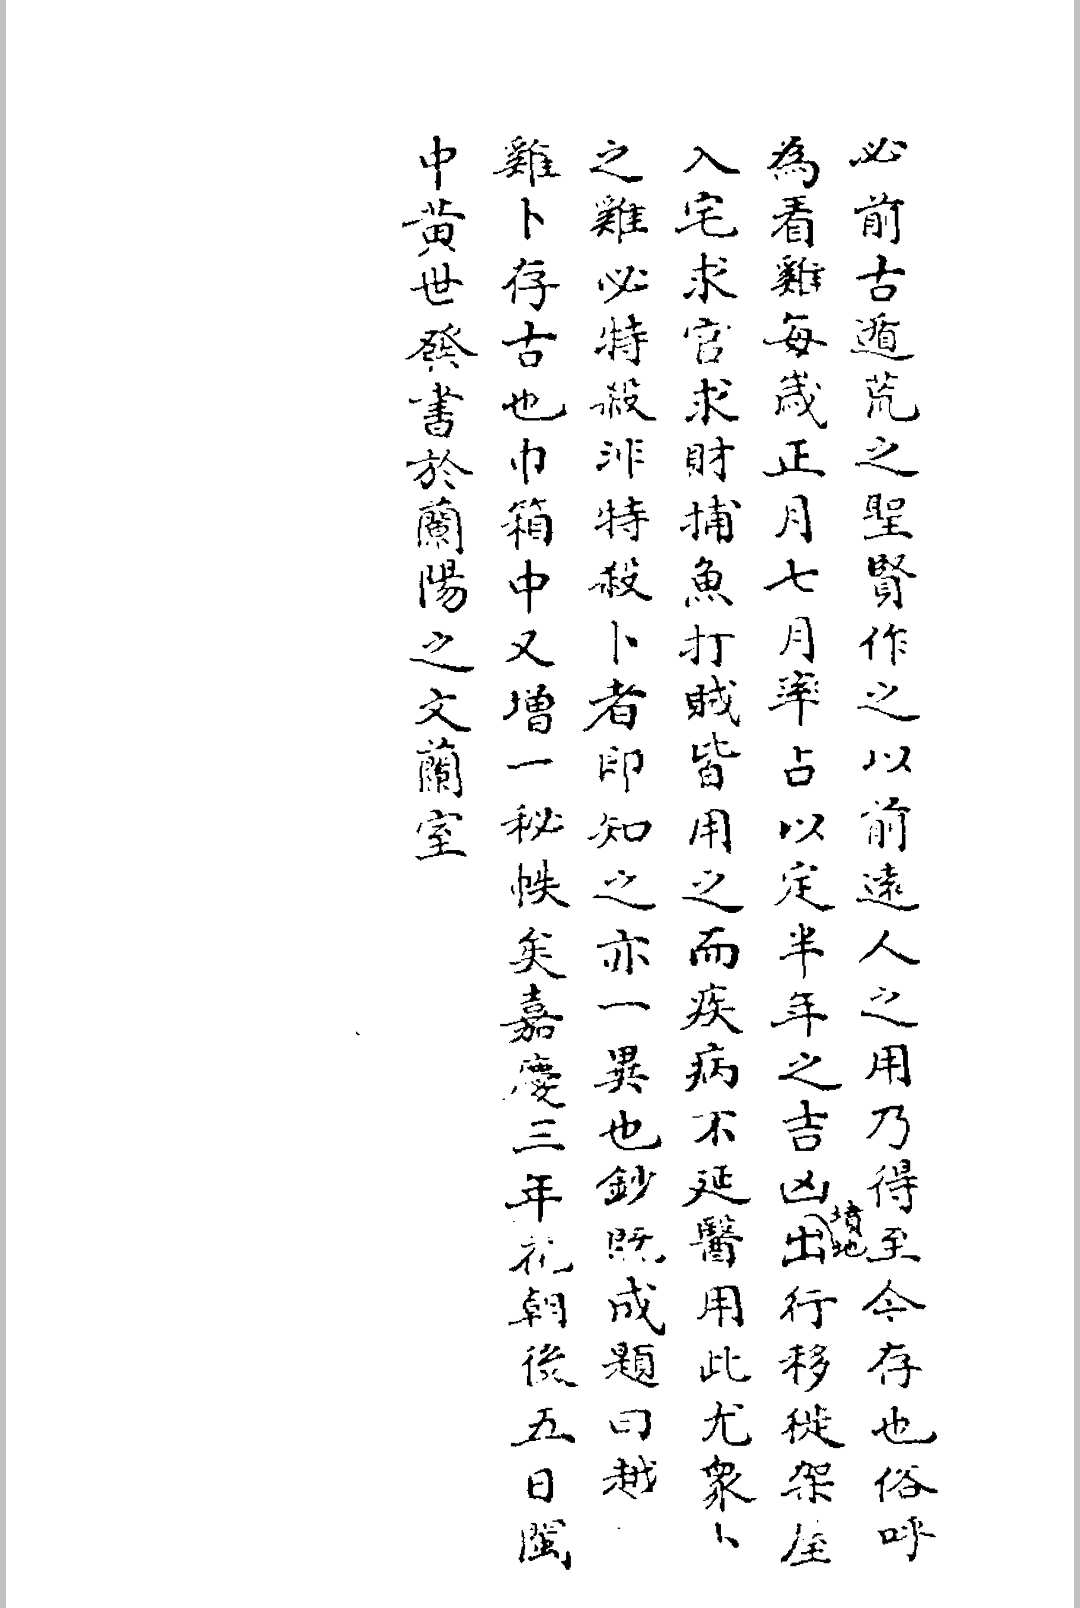 必前古遁荒之聖賢作之以前遠人之用乃得至今存也俗呼
為看雞每歲正月七月率占以定半年之吉凶墳地出行移徙架屋
入宅求官求財捕魚打賊皆用之而疾病不延醫用此尤衆卜
之雞必特殺非特殺卜者即知之亦一異也鈔既成題曰越
雞卜存古也巾箱中又增一秘帙矣嘉慶三年花朝後五日閩
中黃世發書於蘭陽之文蘭室